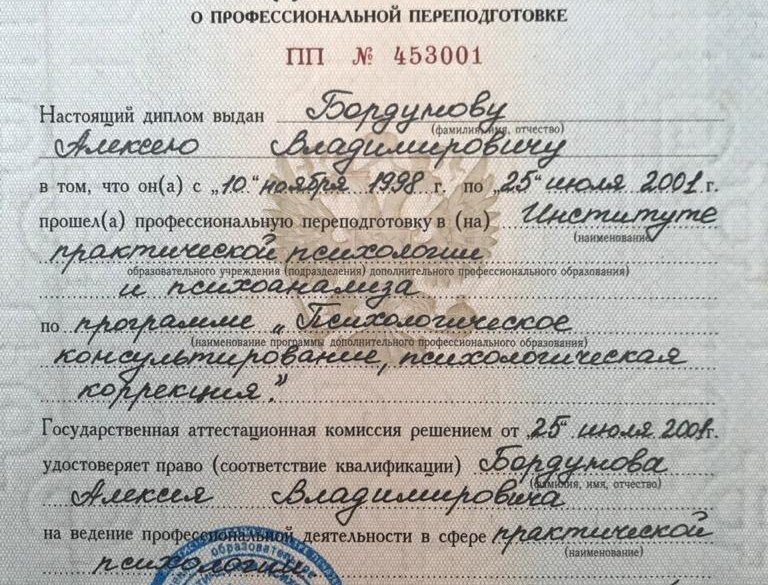 О ПРОФЕССИОНАЛЬНОЙ ПЕРЕПОДГОТОВКЕ
ПП № 453001
Настоящий диплом выдан Бордунову
(фамилия, имя, отчество)
Алексею Владимировичу
в том, что он(а) с „10“ ноября 1998 г. по „25“ июля 2001 г.
прошел(а) профессиональную переподготовку в (на) Институте
(наименование
практической психологии
образовательного учреждения (подразделения) дополнительного профессионального образования)
и психоанализа
по программе „Психологическое
(наименование программы дополнительного профессионального образования)
консультирование, психологическая
коррекция.“
Государственная аттестационная комиссия решением от „25“ июля 2001г.
удостоверяет право (соответствие квалификации) Бордунова
(фамилия, имя, отчество)
Алексея Владимировича
на ведение профессиональной деятельности в сфере практической
(наименование)
психологии